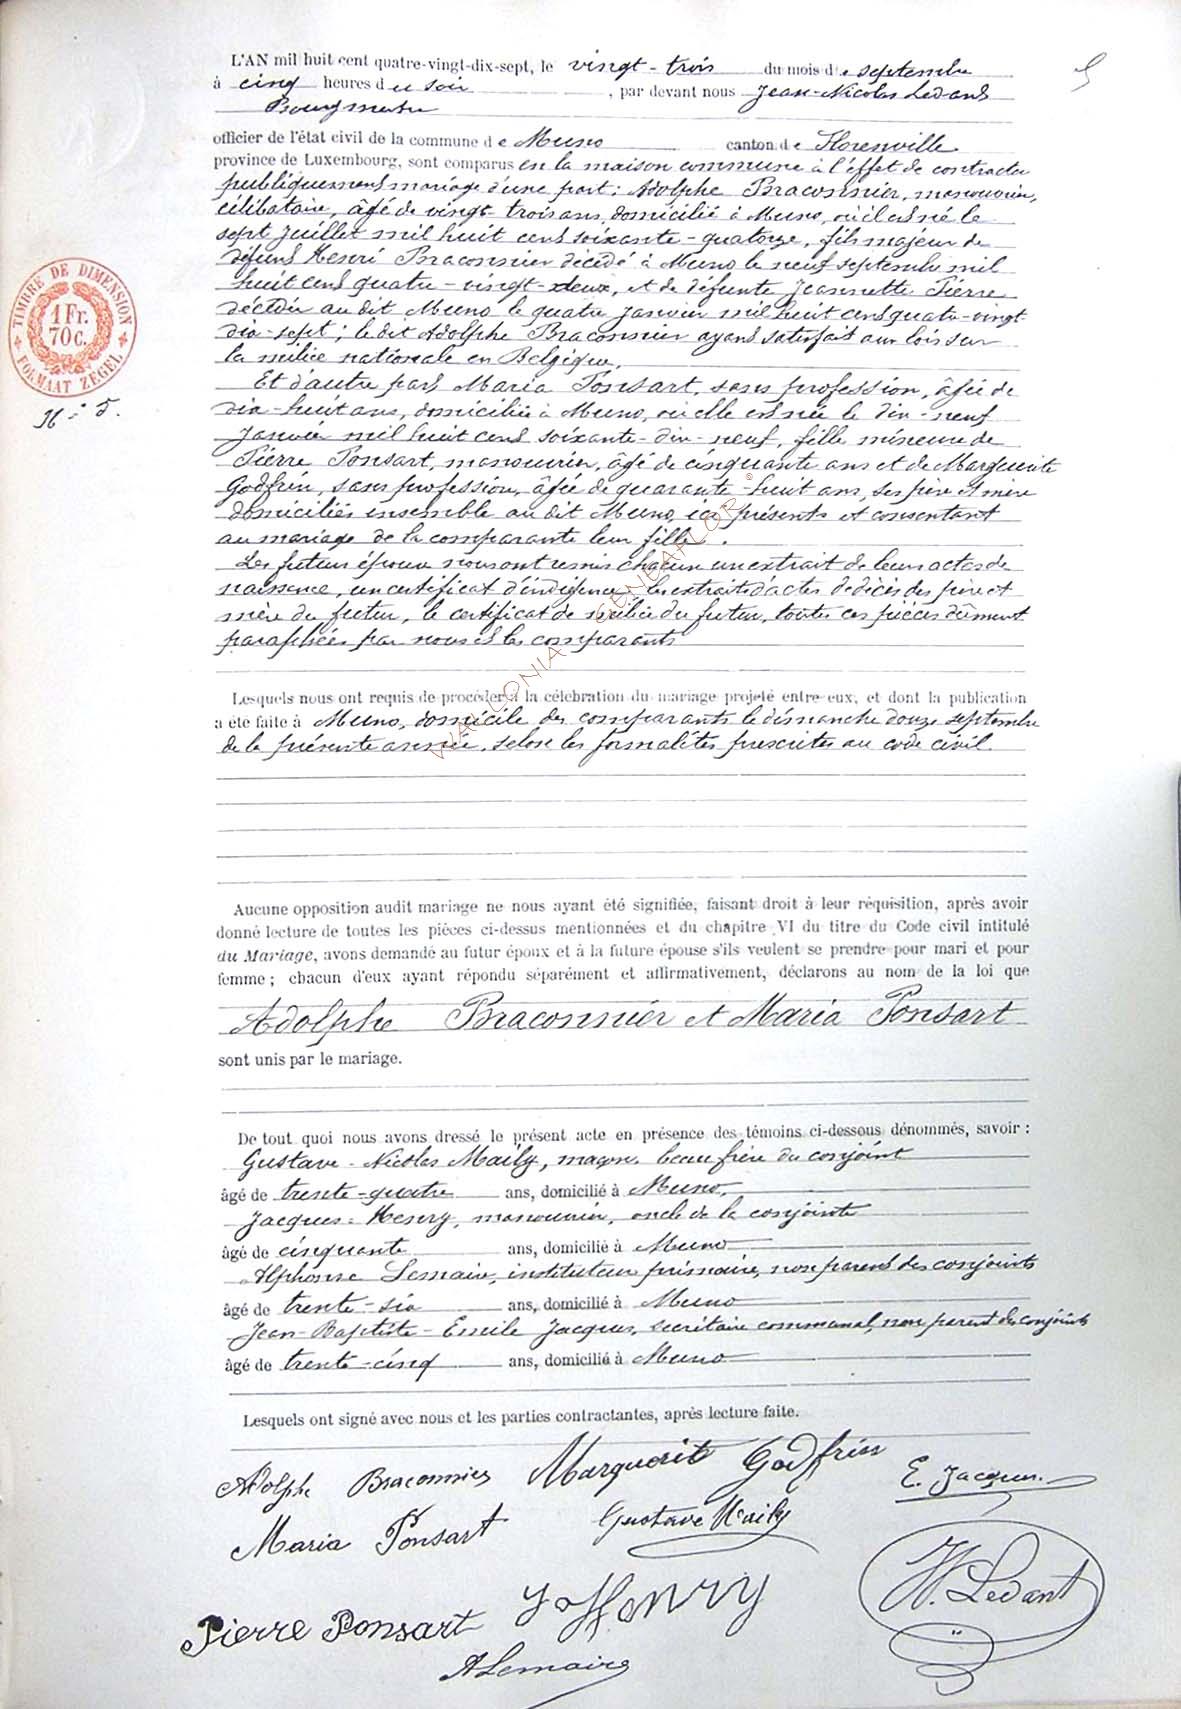 L'AN mil huit cent quatre-vingt-dix-sept, le vingt-trois du mois de septembre
à cinq heures du soir , par devant nous Jean-Nicolas Ledant
Bourgmestre
officier de l'état civil de la commune de Muno canton de Florenville
province de Luxembourg, sont comparus en la maison commune à l'effet de contracter
publiquement mariage d'une part: Adolphe Braconnier, manouvrier,
célibataire, âgé de vingt-trois ans, domicilié à Muno, où il est né le
sept Juillet mil huit cent soixante-quatorze, fils majeur de
défunt Henri Braconnier décédé à Muno le neuf septembre mil
huit cent quatre-vingt-deux, et de défunte Jeannette Pierre
décédée au dit Muno le quatre janvier mil huit cent quatre-vingt-
dix-sept; le dit Adolphe Braconnier ayant satisfait aux lois sur
la milice nationale en Belgique.
Et d'autre part Maria Ponsart, sans profession, âgée de
dix-huit ans, domiciliée à Muno, où elle est née le dix-neuf
Janvier mil huit cent soixante-dix-neuf, fille mineure de
Pierre Ponsart, manouvrier, âgé de cinquante ans et de Marguerite
Godfrin, sans profession, âgée de quarante-huit ans, ses père et mère
domiciliés ensemble au dit Muno, ici présents et consentant
au mariage de la comparante leur fille.
Les futurs époux nous ont remis chacun un extrait de leurs actes de
naissance, un certificat d'indigence, les extraits d'actes de décès des père et
mère du futur, le certificat de milice du futur, toutes ces pièces dûment
paraphées par nous et les comparants
Lesquels nous ont requis de procéder à la célébration du mariage projeté entre eux, et dont la publication
a été faite à Muno, domicile des comparants le dimanche douze septembre
de la présente année, selon les formalités prescrites au code civil.
Aucune opposition audit mariage ne nous ayant été signifiée, faisant droit à leur réquisition, après avoir
donné lecture de toutes les pièces ci-dessus mentionnées et du chapitre VI du titre du Code civil intitulé
du Mariage, avons demandé au futur époux et à la future épouse s'ils veulent se prendre pour mari et pour
femme ; chacun d'eux ayant répondu séparément et affirmativement, déclarons au nom de la loi que
Adolphe Braconnier et Maria Ponsart
sont unis par le mariage.
De tout quoi nous avons dressé le présent acte en présence des témoins ci-dessous dénommés, savoir :
Gustave-Nicolas Maily, maçon, beau frère du conjoint
âgé de trente-quatre ans, domicilié à Muno,
Jacques-Henry, manouvrier, oncle de la conjointe
âgé de cinquante ans, domicilié à Muno
Alphonse Lemaire, instituteur primaire, non parent des conjoints
âgé de trente-six ans, domicilié à Muno
Jean-Baptiste-Emile Jacques, secrétaire communal, non parent des conjoints
âgé de trente-cinq ans, domicilié à Muno
Lesquels ont signé avec nous et les parties contractantes, après lecture faite.
Adolphe Braconnier Marguerite Godfrin E. Jacques
Maria Ponsart Gustave Maily
Pierre Ponsart J Henry N. Ledant
A Lemaire
TIMBRE DE DIMENSION
1 Fr.
70 c.
FORMAAT ZEGEL
WALLONIA GENEAFLOR ©